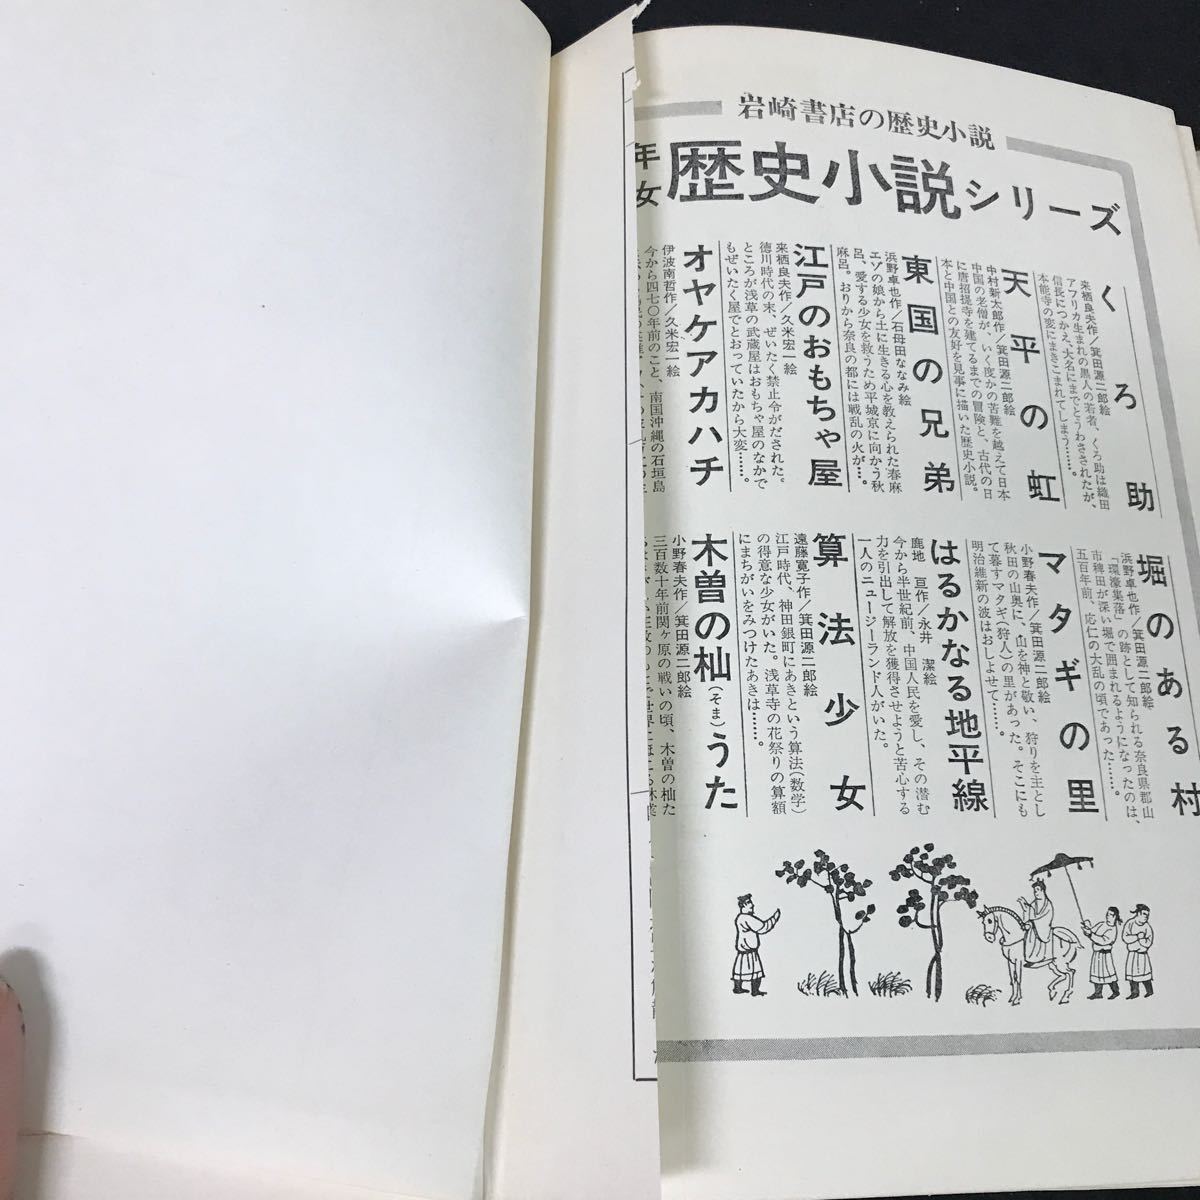 岩崎書店の歴史小説
年
女
歴史小説シリーズ
くろ助
来栖良夫作／箕田源二郎絵
アフリカ生まれの黒人の若者、くろ助は織田
信長につかえ、大名にまでとうわさされたが、
本能寺の変にまきこまれてしまう……。
天平の虹
中村新太郎作／箕田源二郎絵
中国の老僧が、いく度かの苦難を越えて日本
に唐招提寺を建てるまでの冒険と、古代の日
本と中国との友好を見事に描いた歴史小説。
東国の兄弟
浜野卓也作／石母田ななみ絵
エゾの娘から土に生きる心を教えられた春麻
呂、愛する少女を救うため平城京に向かう秋
麻呂。おりから奈良の都には戦乱の火が…。
江戸のおもちゃ屋
来栖良夫作／久米宏一絵
徳川時代の末、ぜいたく禁止令がだされた。
ところが浅草の武蔵屋はおもちゃ屋のなかで
もぜいたく屋でとおっていたから大変……。
オヤケアカハチ
伊波南哲作／久米宏一絵
今から四七〇年前のこと、南国沖縄の石垣島
堀のある村
浜野卓也作／箕田源二郎絵
「環濠集落」の跡として知られる奈良県郡山
市稗田が深い堀で囲まれるようになったのは、
五百年前、応仁の大乱の頃であった……。
マタギの里
小野春夫作／箕田源二郎絵
秋田の山奥に、山を神と敬い、狩りを主とし
て暮すマタギ（狩人）の里があった。そこにも
明治維新の波はおしよせて……。
はるかなる地平線
鹿地　亘作／永井　潔絵
今から半世紀前、中国人民を愛し、その潜む
力を引出して解放を獲得させようと苦心する
一人のニュージーランド人がいた。
算法少女
遠藤寛子作／箕田源二郎絵
江戸時代、神田銀町にあきという算法（数学）
の得意な少女がいた。浅草寺の花祭りの算額
にまちがいをみつけたあきは……。
木曽の杣（そま）うた
小野春夫作／箕田源二郎絵
三百数十年前関ヶ原の戦いの頃、木曽の杣た